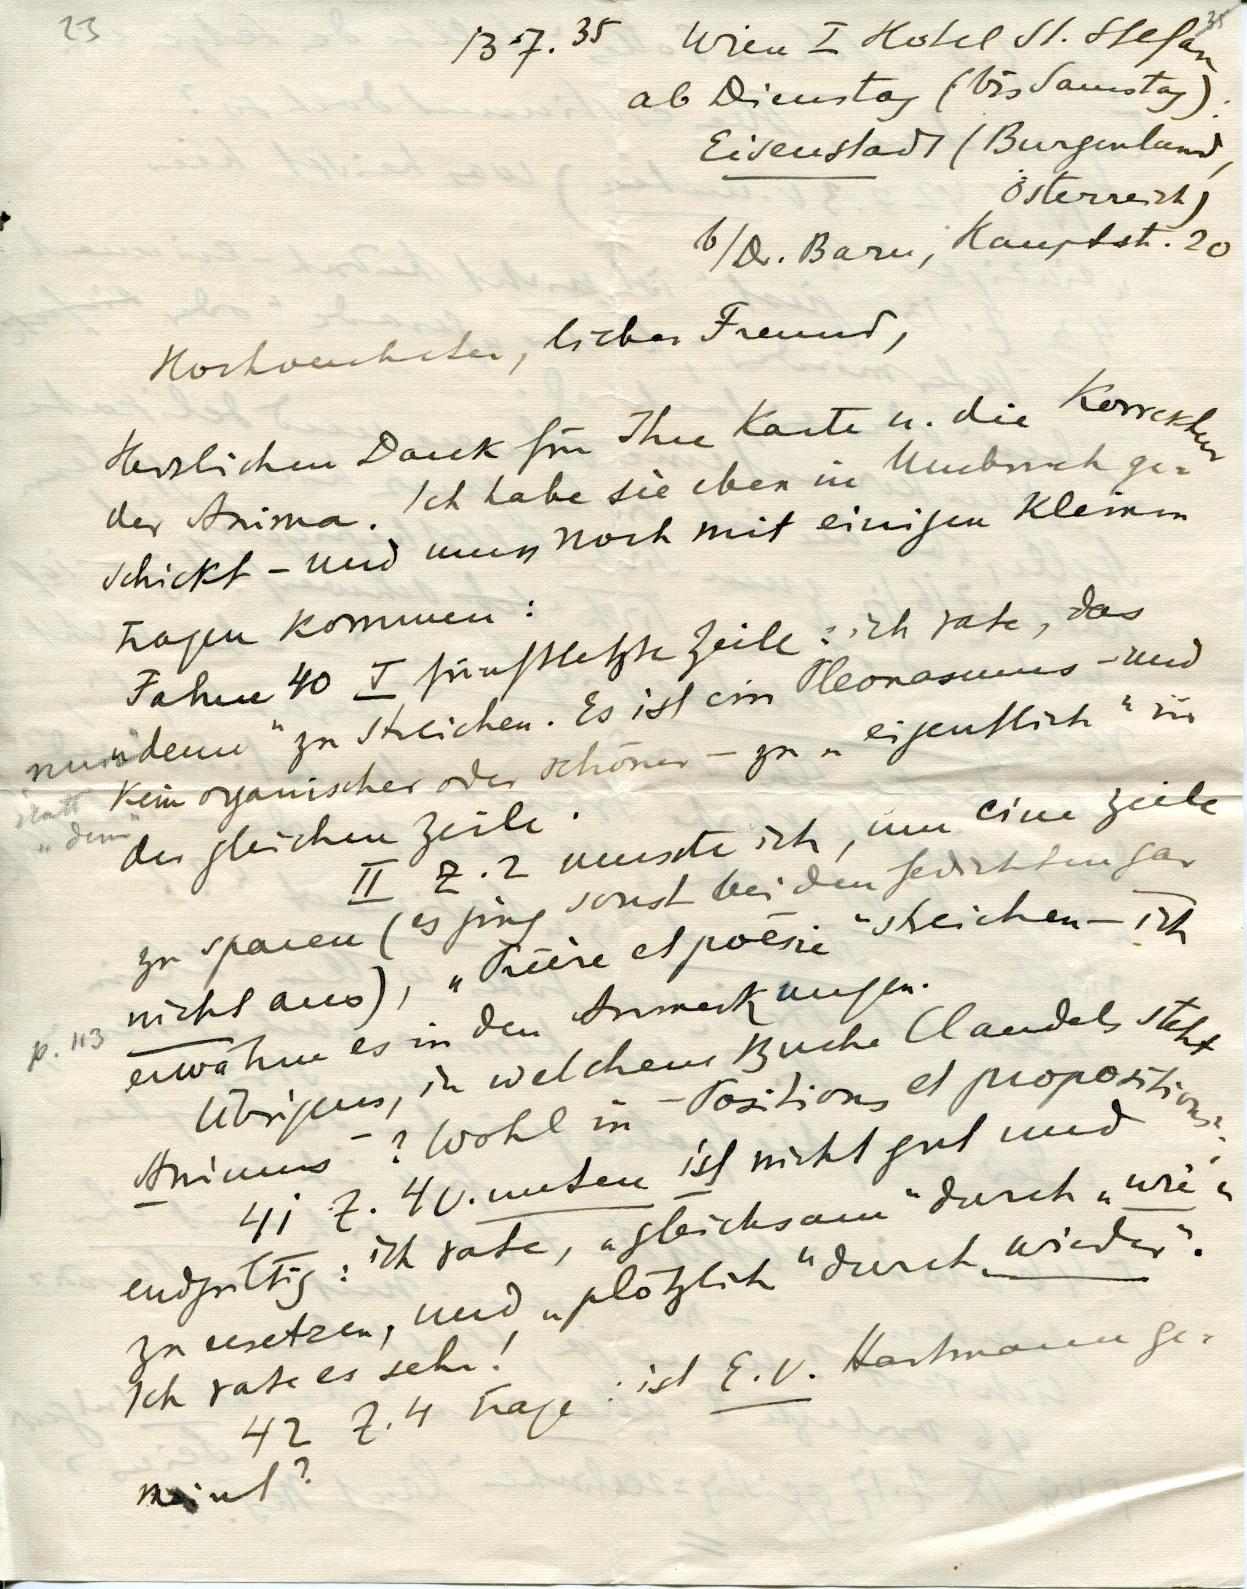 23
35
13.7.35 Wien I Hotel St. Stefan
ab Dienstag (bis Samstag):
Eisenstadt (Burgenland,
Österreich)
b/Dr. Baru, Hauptstr. 20
Hochverehrter, lieber Freund,
Herzlichen Dank für Ihre Karte u. die Korrektur
der Anima. Ich habe sie eben in Umbruch ge-
schickt – und muss noch mit einigen kleinen
Fragen kommen:
Fahne 40 I fünftletzte Zeile: ich rate, das
„denn" zu streichen. Es ist ein Pleonasmus – und
kein organischer oder schöner – zu „eigentlich" in
der gleichen Zeile.
„nun"
statt
„denn"
II Z. 2 musste ich, um eine Zeile
zu sparen (es ging sonst bei den Gedichten gar
nicht aus), „Prière et poësie" streichen – ich
erwähne es in den Anmerkungen.
p. 113
Übrigens, in welchem Buche Claudels steht
Animus – ? Wohl in – Positions et propositions?
41 Z. 4 v. unten ist nicht gut und
endgültig: ich rate, „gleichsam" durch „wie"
zu ersetzen, und „plötzlich" durch „wieder".
Ich rate es sehr!
42 Z. 4 Frage: ist E. v. Hartmann ge-
meint?